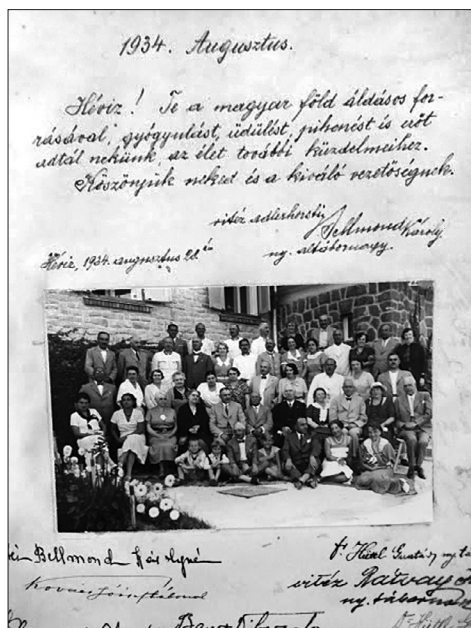 1934. Augusztus.
Hévíz! Te a magyar föld áldásos for-
rásával, gyógyulást, üdülést, pihenést is erőt
adtál nekünk, az élet további küzdelmeihez.
Köszönjük neked és a kiváló vezetőségnek.
vitéz adlerhorsti
Bellmond Károly
ny. altábornagy.
Hévíz, 1934. augusztus 2d. án
Bellmond Károlyné
Dr. Hüttl Gusztáv ny. tá
vitéz Rátvay
ny. tábornok